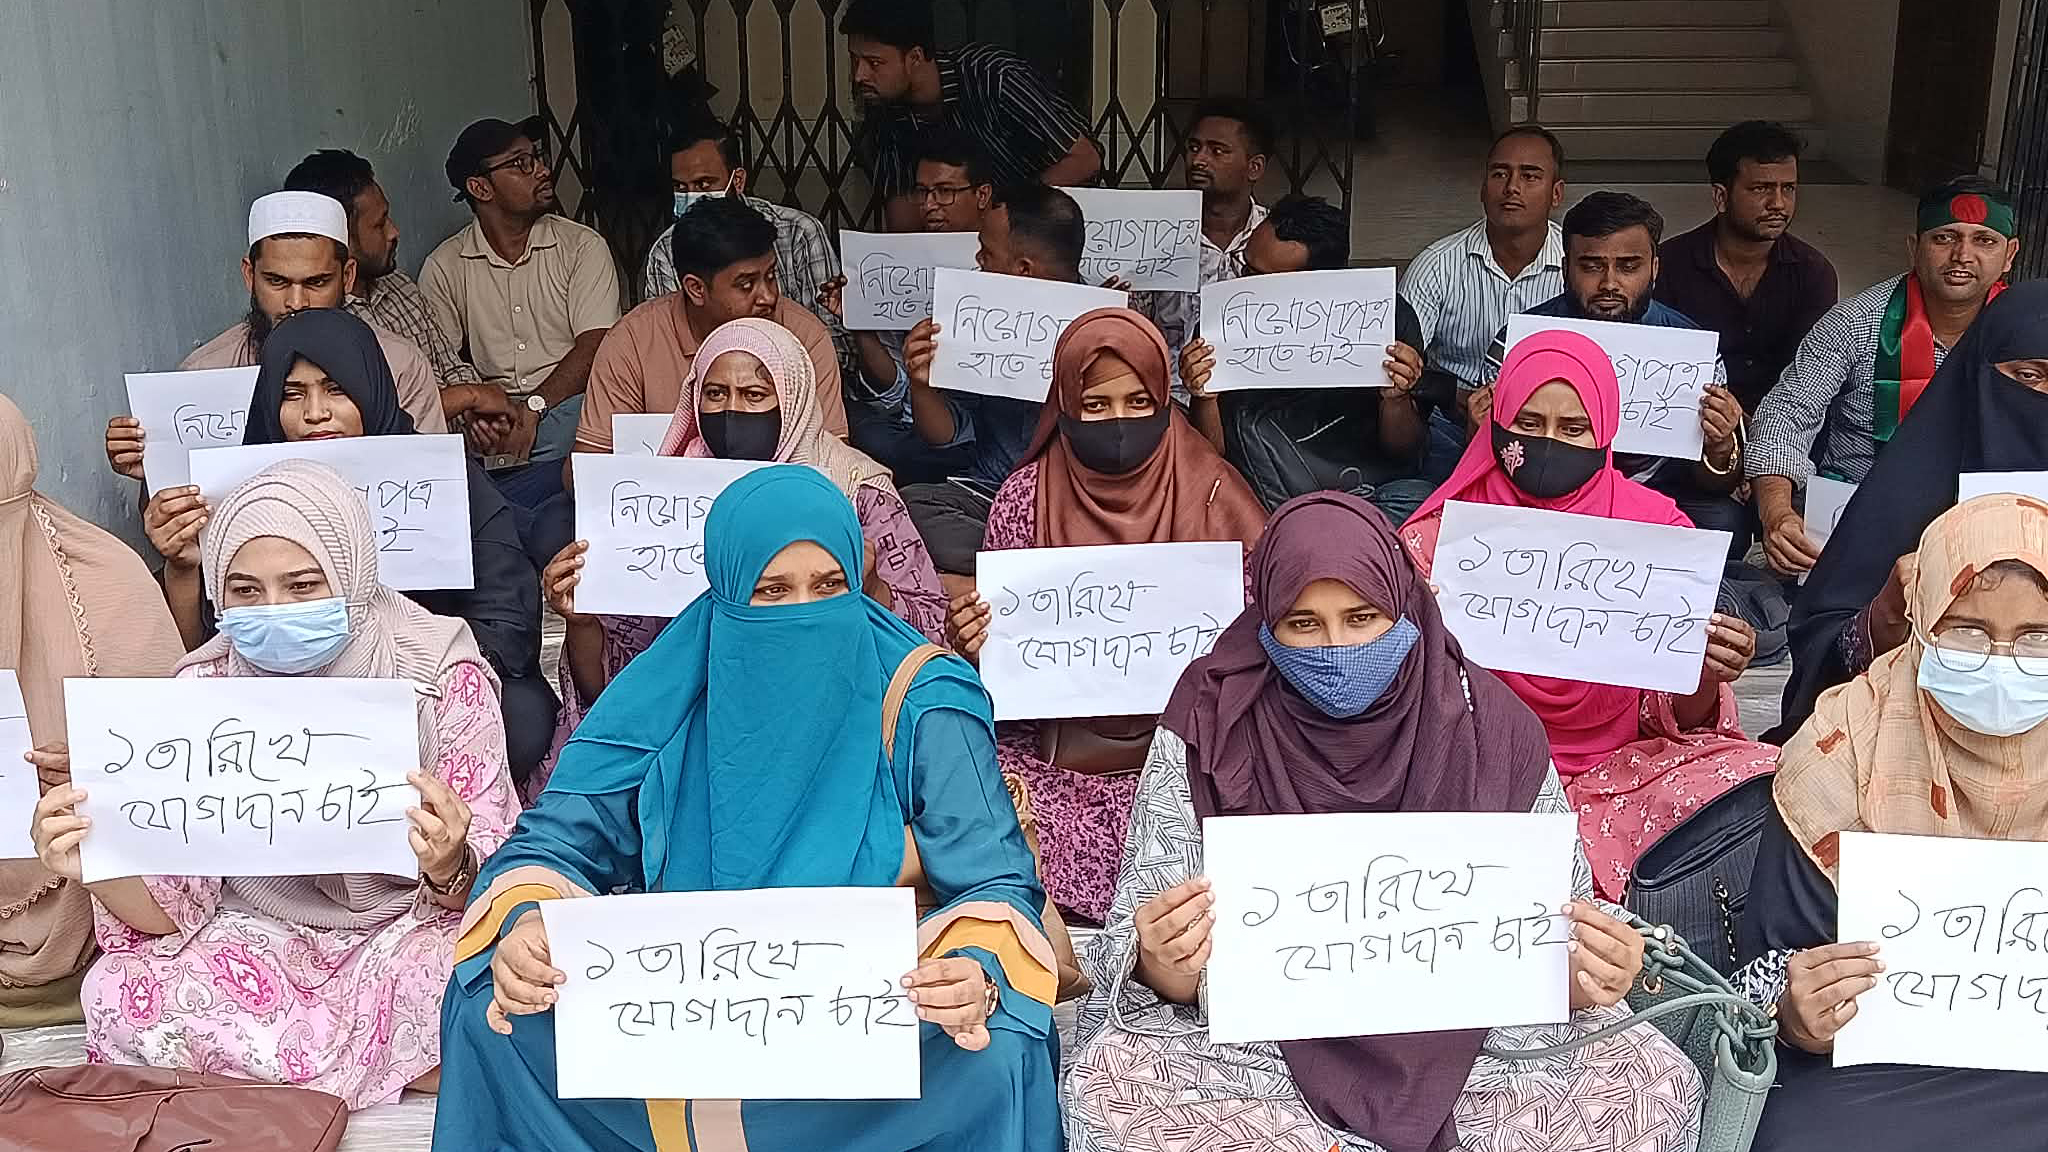 নিয়ো
হাতে
য়োগপত্র
হাতে চাই
নিয়োগ
হাতে
নিয়োগপত্র
হাতে চাই
গপত্র
চাই
নিয়ো
পত্র
ই
নিয়োগ
হাতে
১ তারিখে
যোগদান চাই
১ তারিখে
যোগদান চাই
১ তারিখে
যোগদান চাই
১ তারিখে
যোগদান চাই
১ তারিখে
যোগদান চাই
১ তারি
যোগদা